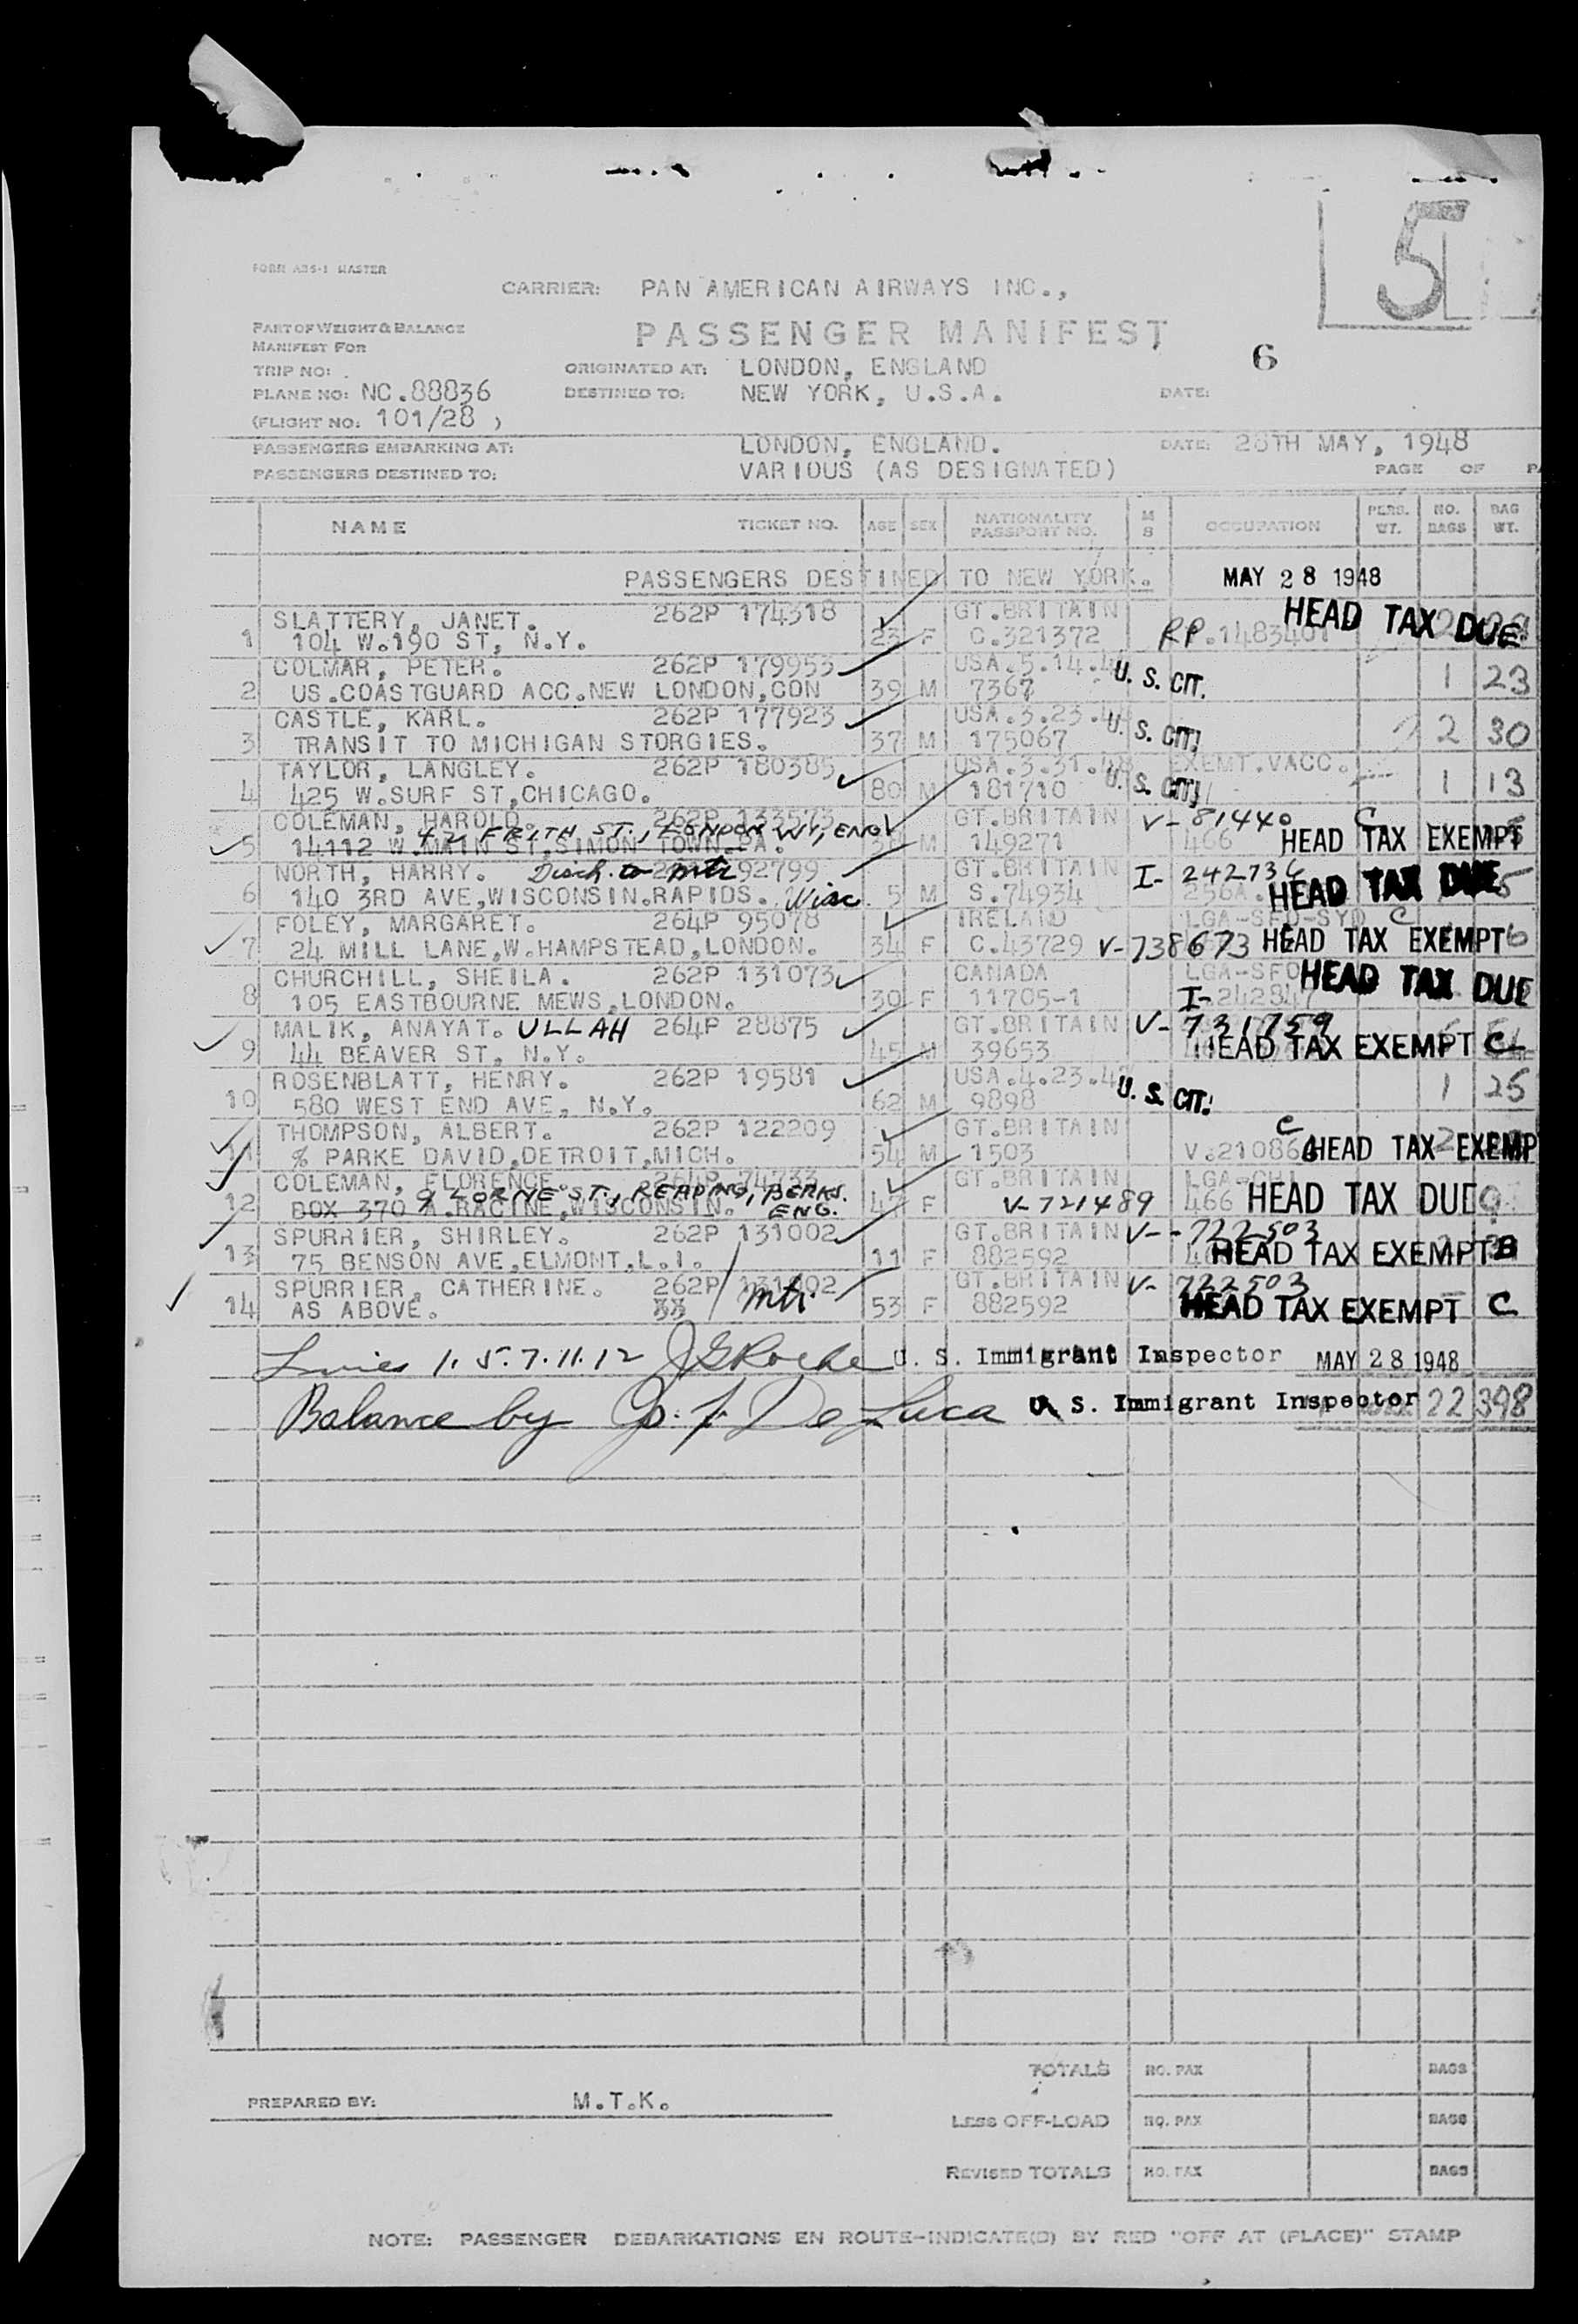 5
FORM ABS-1 MASTER
CARRIER: PAN AMERICAN AIRWAYS INC.,
PART OF WEIGHT & BALANCE
MANIFEST FOR
PASSENGER MANIFEST
6
TRIP NO:
ORIGINATED AT: LONDON, ENGLAND
PLANE NO: NC.88836
DESTINED TO: NEW YORK, U.S.A.
DATE:
(FLIGHT NO: 101/28 )
PASSENGERS EMBARKING AT: LONDON, ENGLAND. DATE: 28TH MAY, 1948
PASSENGERS DESTINED TO: VARIOUS (AS DESIGNATED) PAGE OF
NAME TICKET NO. AGE SEX NATIONALITY PASSPORT NO. M S OCCUPATION PERS. WT. NO. BAGS BAG WT.
PASSENGERS DESTINED TO NEW YORK. MAY 28 1948
SLATTERY, JANET. 262P 174318 GT.BRITAIN HEAD TAX DUE
1 104 W.190 ST, N.Y. 23 F C.321372 RP.1483401
COLMAR, PETER. 262P 179953 USA.5.14. U. S. CIT.
2 US.COASTGUARD ACC.NEW LONDON,CON 39 M 7367 1 23
CASTLE, KARL. 262P 177923 USA.3.23. U. S. CIT.
3 TRANSIT TO MICHIGAN STORGIES. 37 M 175067 2 30
TAYLOR, LANGLEY. 262P 180385 USA.3.31.48 EXEMT.VACC.
4 425 W.SURF ST,CHICAGO. 80 M 181710 U. S. CIT. 1 13
COLEMAN, HAROLD. 262P 133573 GT.BRITAIN V-81440 C
47 FRITH ST., LONDON W1, ENG
5 14112 W.MAIN ST,SIMON TOWN.PA. M 149271 466 HEAD TAX EXEMPT
NORTH, HARRY. Disch. to mtr 92799 GT.BRITAIN I-242736
6 140 3RD AVE,WISCONSIN.RAPIDS. Wisc. 5 M S.74934 256A. HEAD TAX DUE 5
FOLEY, MARGARET. 264P 95078 IRELAND LGA-SFO-SYD C
7 24 MILL LANE,W.HAMPSTEAD,LONDON. 34 F C.43729 V-738673 HEAD TAX EXEMPT
CHURCHILL, SHEILA. 262P 131073 CANADA LGA-SFO HEAD TAX DUE
8 105 EASTBOURNE MEWS,LONDON. 30 F 11705-1 I-242847
MALIK, ANAYAT. ULLAH 264P 28875 GT.BRITAIN V-731759
9 44 BEAVER ST, N.Y. 45 M 39653 HEAD TAX EXEMPT C
ROSENBLATT, HENRY. 262P 19581 USA.4.23.47 U. S. CIT.
10 580 WEST END AVE, N.Y. 62 M 9898 1 25
THOMPSON, ALBERT. 262P 122209 GT.BRITAIN C
11 % PARKE DAVID,DETROIT,MICH. 54 M 1503 V.210866 HEAD TAX EXEMP
COLEMAN, FLORENCE. 264P 74733 GT.BRITAIN LGA-CHI
9 LORNE ST., READING, BERKS. ENG.
12 BOX 370 A.RACINE,WISCONSIN. 47 F V-721489 466 HEAD TAX DUE
SPURRIER, SHIRLEY. 262P 131002 GT.BRITAIN V-722503
13 75 BENSON AVE,ELMONT.L.I. 11 F 882592 HEAD TAX EXEMPT B
SPURRIER, CATHERINE. 262P 131002 GT.BRITAIN V-722503
14 AS ABOVE. mtr. 53 F 882592 HEAD TAX EXEMPT C
Lines 1.5.7.11.12 JGRoche U. S. Immigrant Inspector MAY 28 1948
Balance by Jo. F. De Luca U. S. Immigrant Inspector 22 398
TOTALS NO. PAX BAGS
PREPARED BY: M.T.K.
LESS OFF-LOAD NO. PAX BAGS
REVISED TOTALS NO. PAX BAGS
NOTE: PASSENGER DEBARKATIONS EN ROUTE-INDICATE(D) BY RED "OFF AT (PLACE)" STAMP